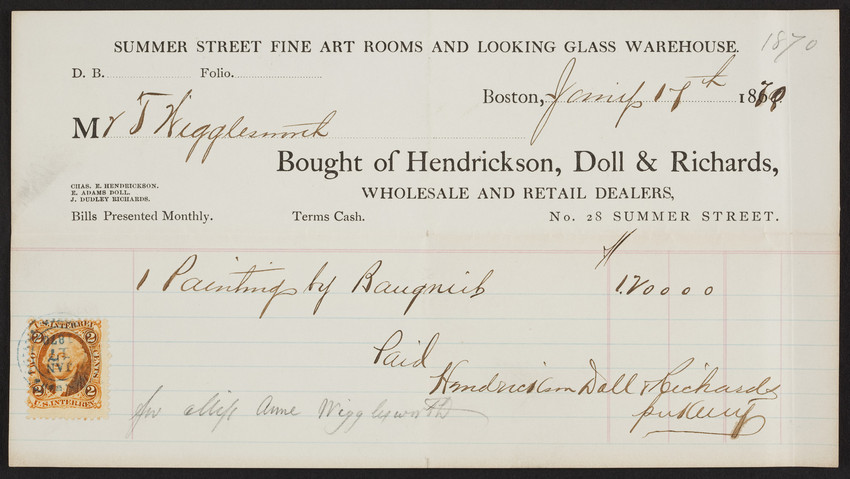 SUMMER STREET FINE ART ROOMS AND LOOKING GLASS WAREHOUSE. 1870
D. B. Folio.
Boston, 17th 1870
Mr T Wigglesworth
Bought of Hendrickson, Doll & Richards,
CHAS. E. HENDRICKSON.
E. ADAMS DOLL.
J. DUDLEY RICHARDS.
WHOLESALE AND RETAIL DEALERS,
Bills Presented Monthly. Terms Cash. No. 28 SUMMER STREET.
1 Painting by Baugniet $ 1200 00
U.S. INTER. REV.
2 2
TWO CENTS
JAN
17
1870
2 2
U.S. INTER. REV.
Paid
Hendrickson Doll & Richards
for Miss Anne Wigglesworth